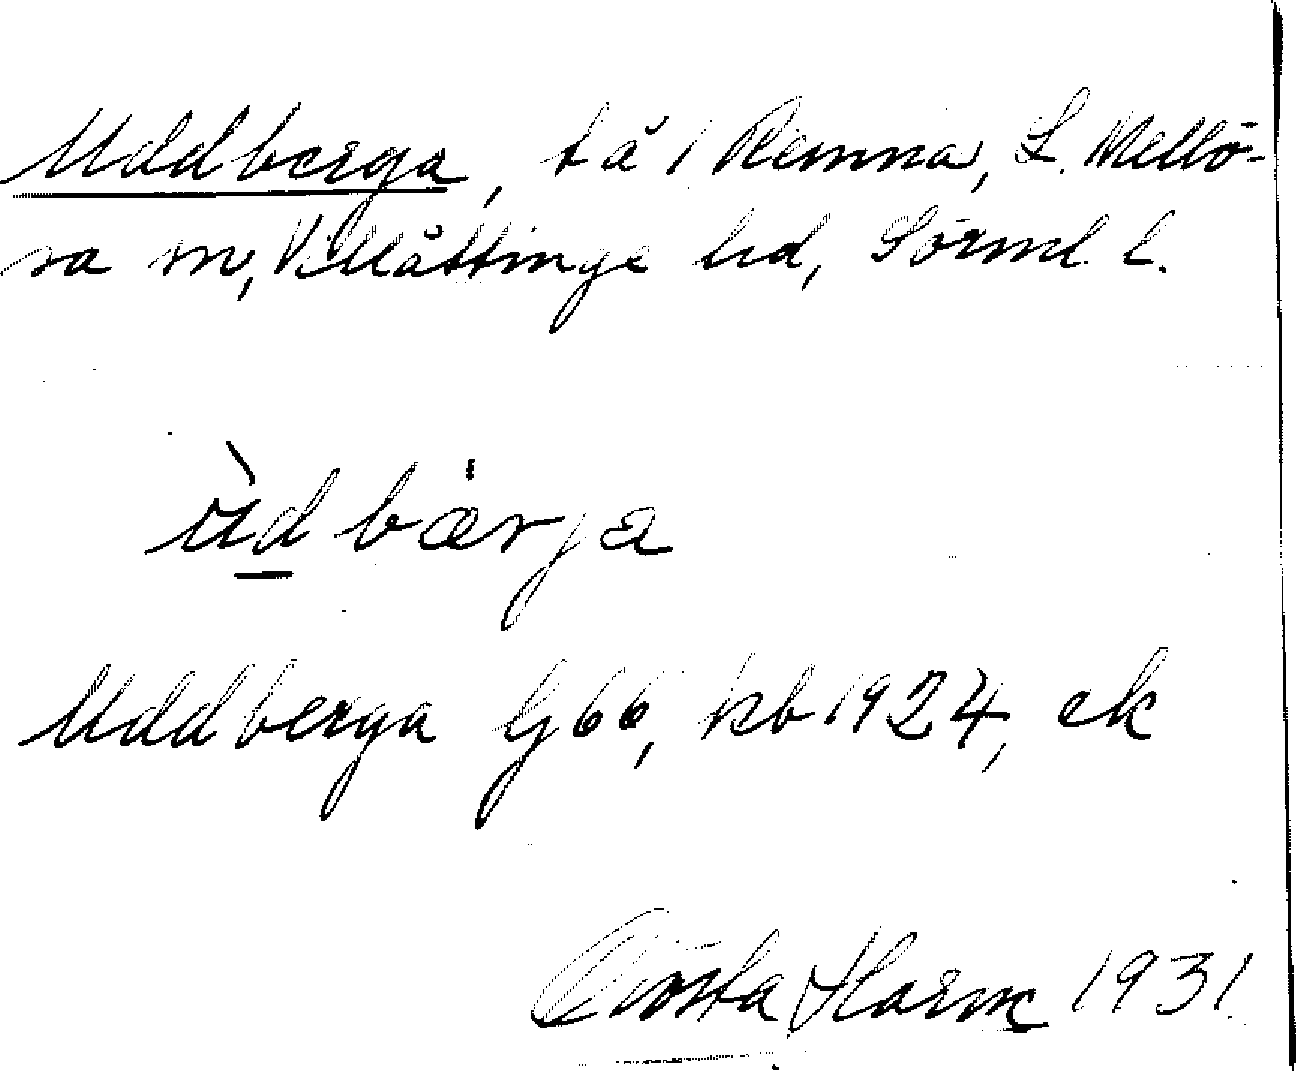 Uddberga, t å 1 Remna, L. Mellö-
sa sn, Villåttinge hd, Sörml. l.
ùdbærja
Uddberga Gj 66, kb 1924, ek
Gösta Harm 1931.